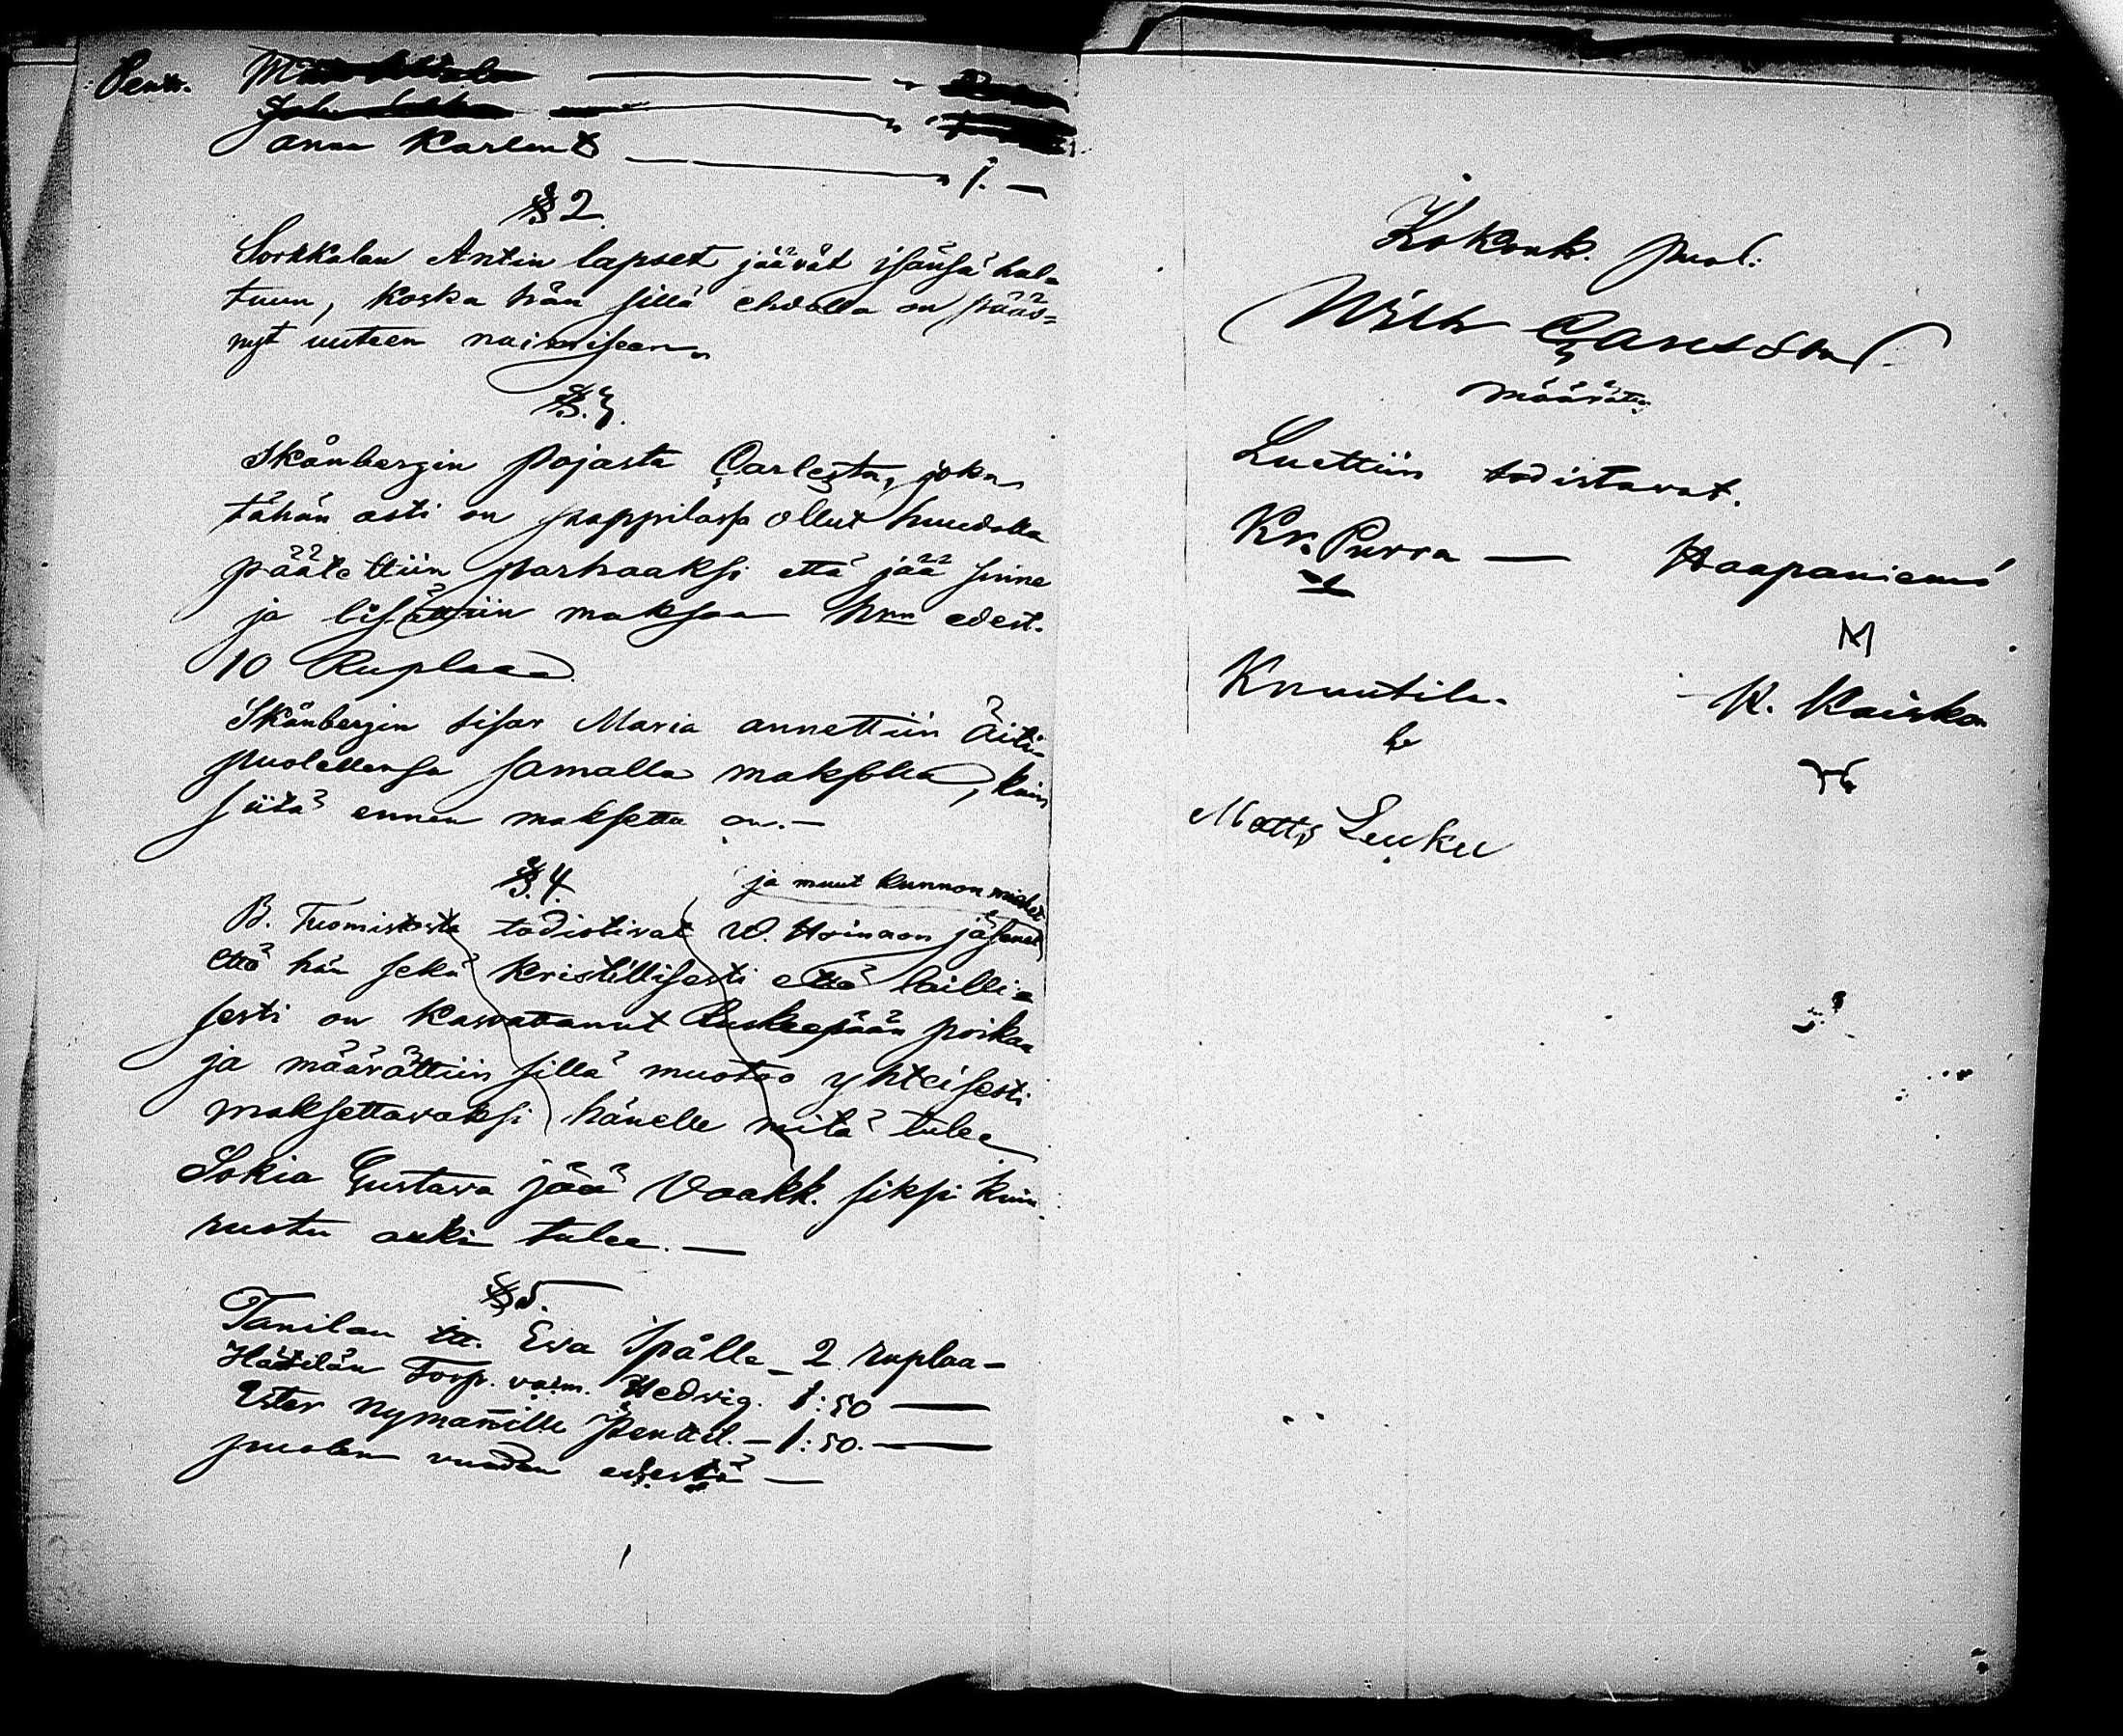 Pentt.
Janne Karlent " 1. —
§ 2.
Sorkkalan Antin lapset jäävät isänsä hal=
tuun, koska hän sillä ehdolla on pääs=
nyt uuteen naimiseen.
§. 3.
Skånbergin pojasta Carlesta, joka
tähän asti on pappilassa ollut huudolla
päätettiin parhaaksi että jää sinne
ja lisättiin maksaa hnn edest.
10 Ruplaa
Skånbergin sisar Maria annettiin äiti-
puolellensa samalla maksolla, kuin
siitä ennen maksettu on. —
§. 4.
ja muut kunnon miehet
B. Tuomistosta todistivat W. Hoinaon jäsenet
että hän sekä kristillisesti että lailli=
sesti on kasvatanut Ruskeepään poikaa
ja määrättiin sillä muotoo yhteisesti
maksettavaksi hänelle mitä tulee
Sokia Gustava jää Vaakk. siksi kuin
ruotu auki tulee. —
§ 5.
Tanilan tt. Eva Spålle - 2 ruplaa -
Hättilän Torp. vaim. Hedvig. 1:50 —
Ester Nymanille Penttil. - 1:50. —
puolen vuoden edestä —
Kokouk. puol.
Wilh Carlsson
määrätty
Luettiin todistavat.
Kr. Purra — Haapaniemi
Knuutila K. Kaiskon
Matts Leuku